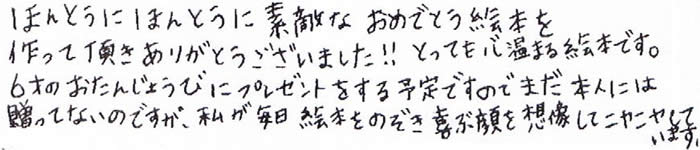 ほんとうにほんとうに素敵な おめでとう絵本を
作って頂きありがとうございました!! とっても心温まる絵本です。
6才のおたんじょうびにプレゼントをする予定ですのでまだ本人には
贈ってないのですが、私が毎日絵本をのぞき喜ぶ顔を想像してニヤニヤして
います。